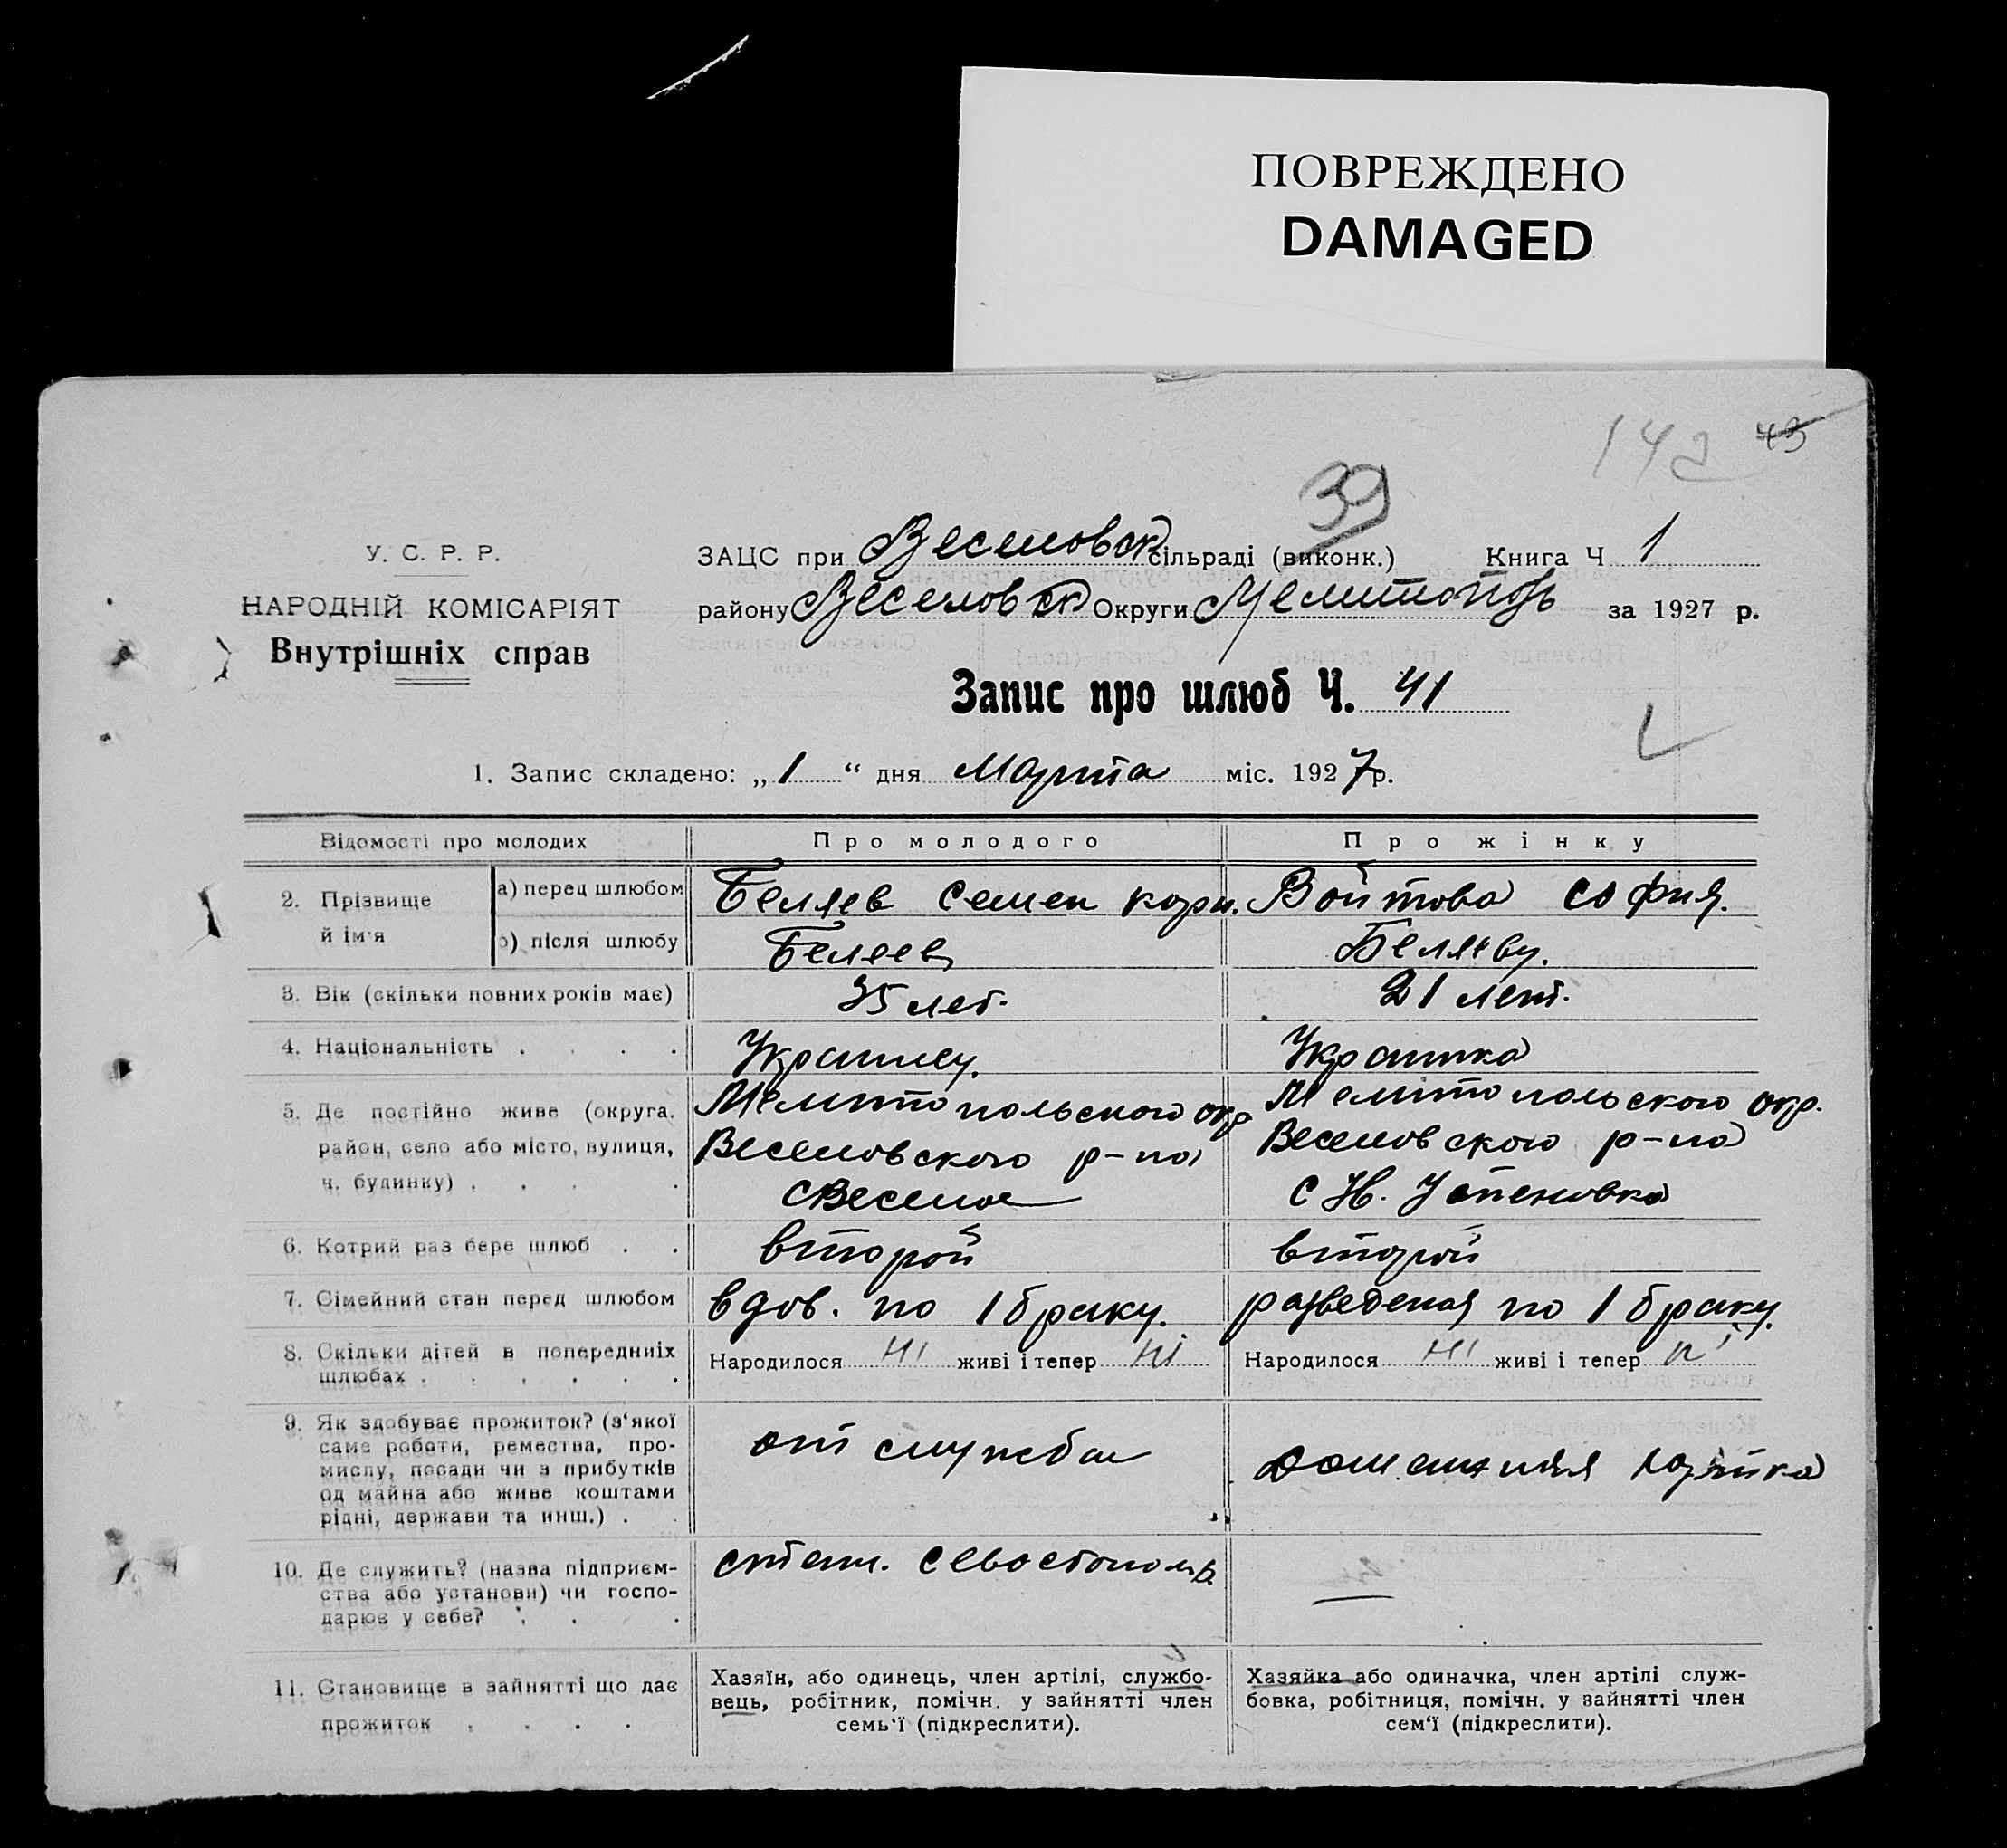 ПОВРЕЖДЕНО
DAMAGED
142 43
39
У. С. Р. Р.
НАРОДНІЙ КОМІСАРІЯТ
Внутрішніх справ
ЗАЦС при Веселовск сільраді (виконк.) Книга Ч 1
району Веселовск Округи Мелитополь за 1927 р.
Запис про шлюб Ч. 41
1. Запис складено: „1“ дня Марта міс. 1927 р.
Відомості про молодих
Про молодого
Про жінку
2. Прізвище й ім'я
а) перед шлюбом
Беляев Семен Корн.
Войтова София.
б) після шлюбу
Беляев
Беляеву.
3. Вік (скільки повних років має)
35 лет.
21 лет.
4. Національність . . . .
Украинец.
Украинка
5. Де постійно живе (округа,
район, село або місто, вулиця,
ч. будинку) . . . .
Мелитопольского окр
Веселовского р-на
с Веселое
Мелитопольского окр.
Веселовского р-на
с Н. Успеновка
6. Котрий раз бере шлюб . .
второй
второй
7. Сімейний стан перед шлюбом
вдов. по 1 браку.
разведеная по 1 браку.
8. Скільки дітей в попередниіх
шлюбах . . . . . .
Народилося ні живі і тепер ні
Народилося ні живі і тепер ні
9. Як здобуває прожиток? (з'якої
саме роботи, ремества, про-
мислу, посади чи з прибутків
од майна або живе коштами
рідні, держави та инш.) .
от службы
домашняя хозяйка
10. Де служить? (назва підприєм-
ства або установи) чи госпо-
дарює у себе? . . .
Севостополь
11. Становище в зайнятті що дає
прожиток . . . .
Хазяїн, або одинець, член артілі, службо-
вець, робітник, помічн. у зайнятті член
семь'ї (підкреслити).
Хазяйка або одиначка, член артілі служ-
бовка, робітниця, помічн. у зайнятті член
сем'ї (підкреслити).